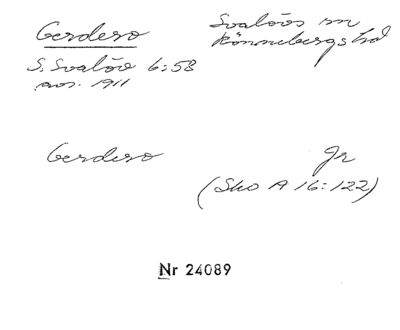 Gerdero
Svalövs sn
Rönnebergs hd
S. Svalöv 6:58
avs. 1911
Gerdero
Jr
(Sko A 16:122)
Nr 24089